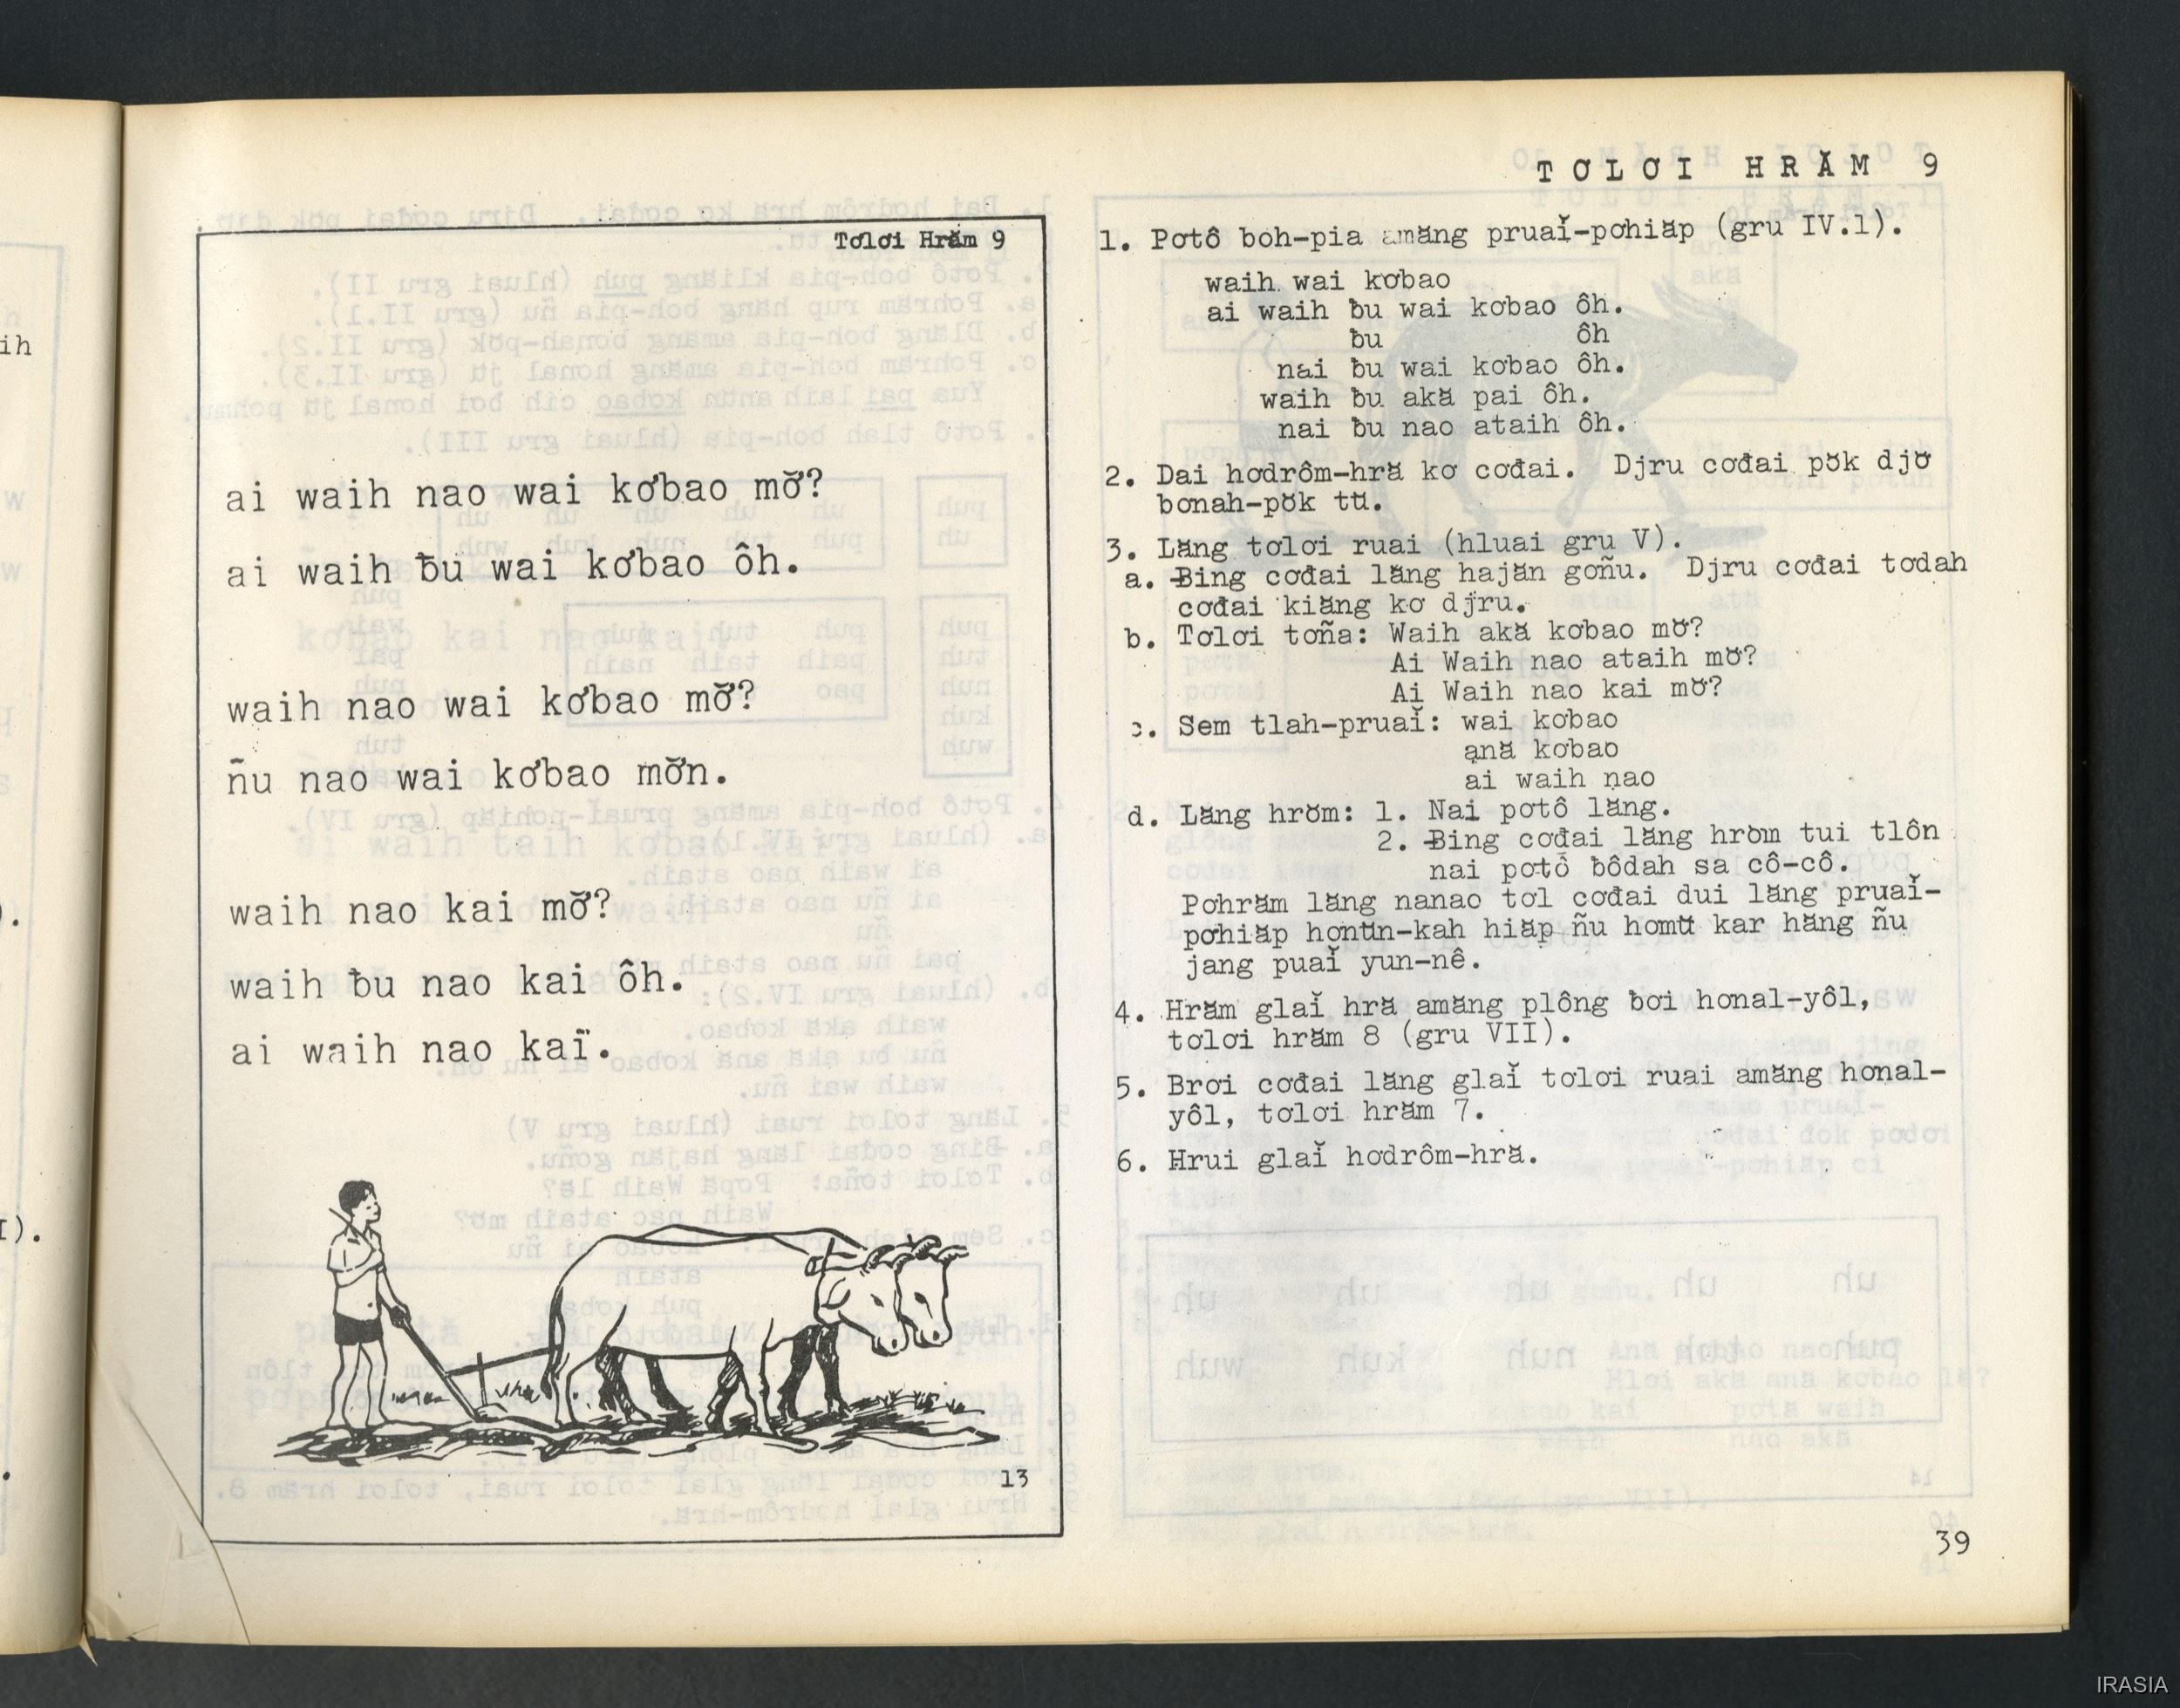 Tơlơi Hrăm 9
ai waih nao wai kơbao mơ̆?
ai waih ƀu wai kơbao ôh.
waih nao wai kơbao mơ̆?
ñu nao wai kơbao mơ̆n.
waih nao kai mơ̆?
waih ƀu nao kai ôh.
ai waih nao kai.
13
TƠLƠI HRĂM 9
1. Pơtô boh-pia amăng pruaĭ-pơhiăp (gru IV.1).
waih wai kơbao
ai waih ƀu wai kơbao ôh.
ƀu ôh
nai ƀu wai kơbao ôh.
waih ƀu akă pai ôh.
nai ƀu nao ataih ôh.
2. Dai hơdrôm-hră kơ cơđai. Djru cơđai pŏk djơ̆
bơnah-pŏk tŭ.
3. Lăng tơlơi ruai (hluai gru V).
a. Ƀing cơđai lăng hajăn gơñu. Djru cơđai tơdah
cơđai kiăng kơ djru.
b. Tơlơi tơña: Waih akă kơbao mơ̆?
Ai Waih nao ataih mơ̆?
Ai Waih nao kai mơ̆?
c. Sem tlah-pruaĭ: wai kơbao
ană kơbao
ai waih nao
d. Lăng hrŏm: 1. Nai pơtô lăng.
2. Ƀing cơđai lăng hrŏm tui tlôn
nai pơtô ƀôdah sa cô-cô.
Pơhrăm lăng nanao tơl cơđai dui lăng pruaĭ-
pơhiăp hơnŭn-kah hiăp ñu hơmŭ kar hăng ñu
jang puaĭ yun-nê.
4. Hrăm glaĭ hră amăng plông ƀơi hơnal-yôl,
tơlơi hrăm 8 (gru VII).
5. Brơi cơđai lăng glaĭ tơlơi ruai amăng hơnal-
yôl, tơlơi hrăm 7.
6. Hrui glaĭ hơdrôm-hră.
39
IRASIA